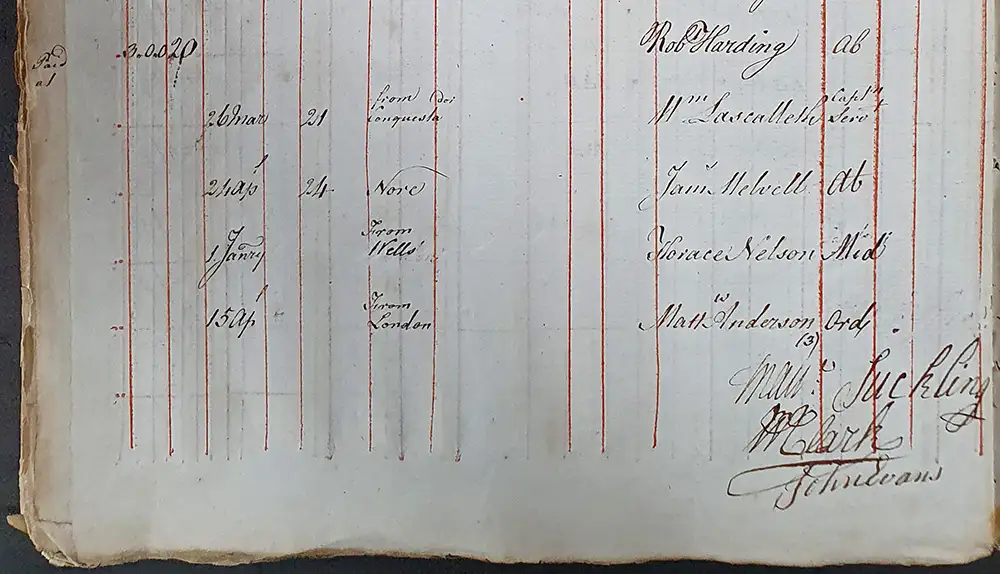 Paid
at
3.0.0 20 Rob Harding ab
26 Mar 21 from
Conquesta Wm Lascalleth Capts
Serv
24 Ap 24 Nore Jams Melvell Ab
1 Janry From
Wells Horace Nelson Mid
15 Ap From
London Mattw Anderson Ord
(3)
Matt. Suckling
Clark
John Evans